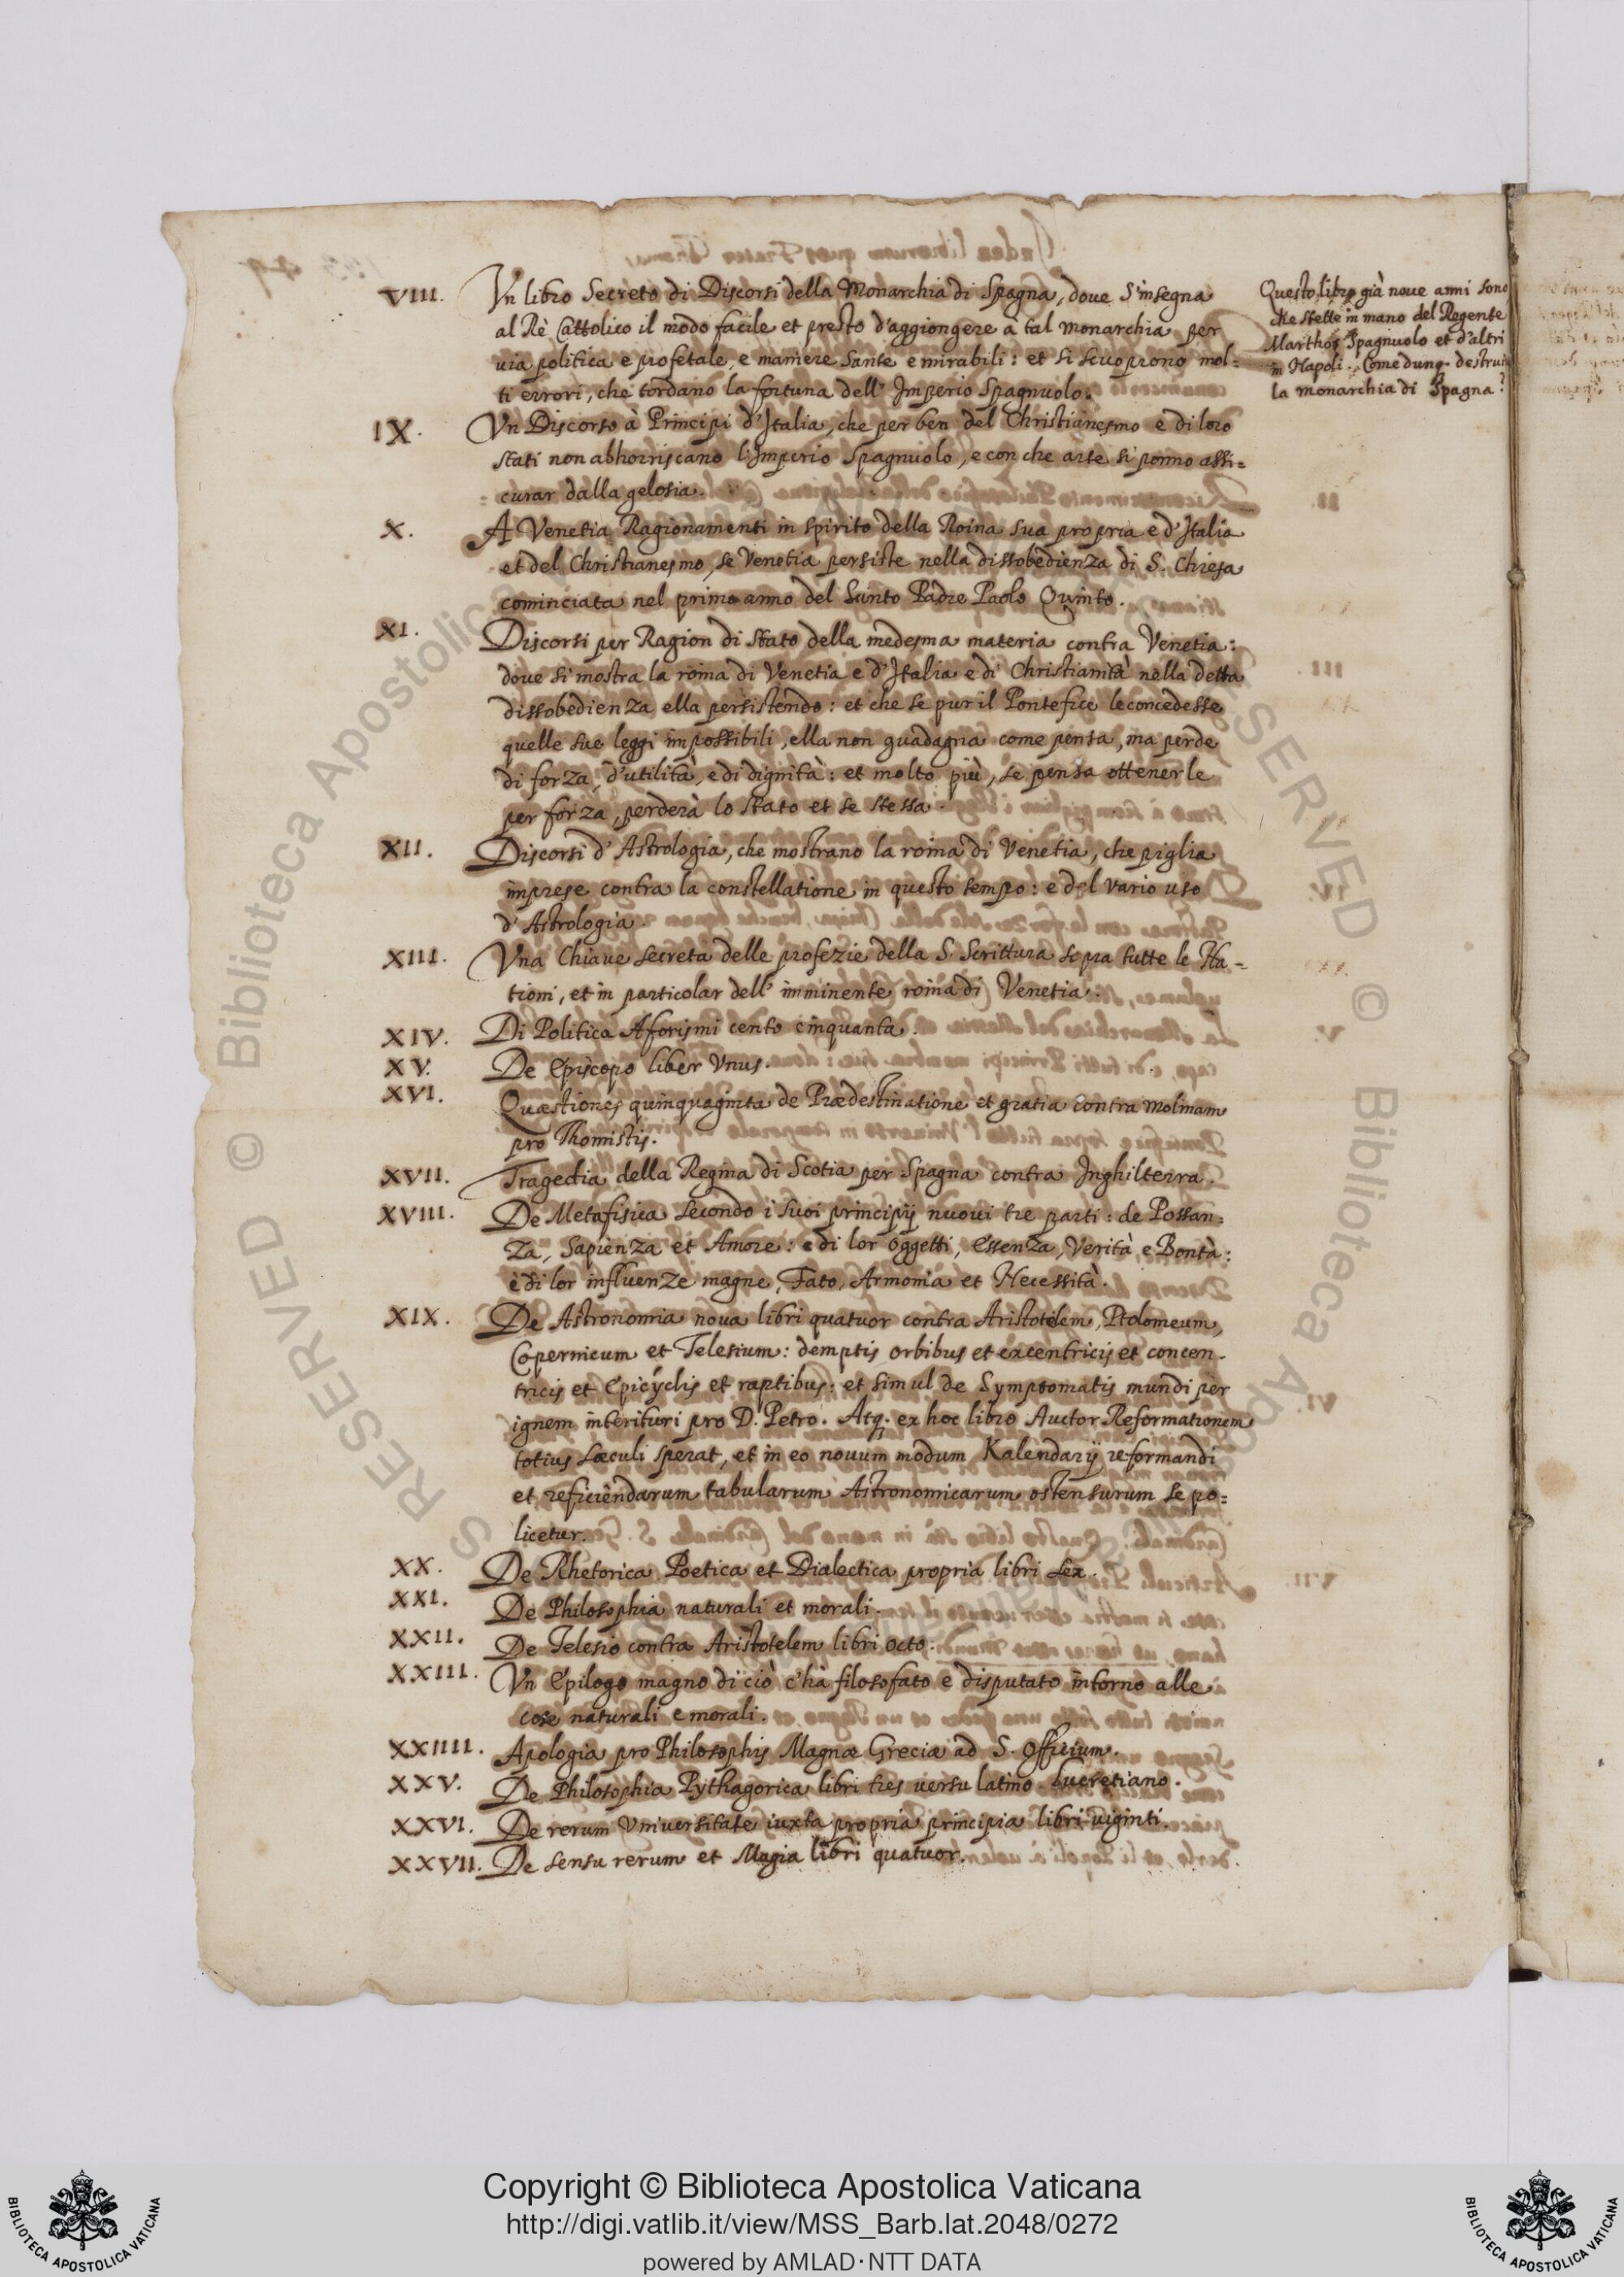 VIII. Vn libro Secreto di Discorsi della Monarchia di Spagna, doue S'insegna
al Rè Cattolico il modo facile et presto d'aggiongere à tal monarchia per
uia politica e profetale, e maniere sante e mirabili: et si scuoprono mol=
ti errori, che tardano la fortuna dell' Imperio Spagnuolo.
Questo libro già noue anni sono
che stette in mano del Regente
Marthos Spagnuolo et d'altri
in Napoli. Come dunq. destrui
la monarchia di Spagna?
IX. Vn Discorso à Principi d'Italia, che per ben del Christianesmo e di loro
stati non abhorriscano l'Imperio Spagnuolo, e con che arte si ponno assi=
curar dalla gelosia.
X. A Venetia Ragionamenti in spirito della Roina sua propria e d'Italia
et del Christianesmo, se Venetia persiste nella dissobedienza di S. Chiesa
cominciata nel primo anno del Santo Padre Paolo Quinto.
XI. Discorsi per Ragion di stato della medesma materia contra Venetia:
doue si mostra la roina di Venetia e d'Italia e di Christianità nella detta
dissobedienza ella persistendo: et che se pur il Pontefice le concedesse
quelle sue leggi impossibili, ella non guadagna come pensa, ma perde
di forza, d'utilità, e di dignità: et molto più, se pensa ottenerle
per forza, perderà lo stato et se stessa.
XII. Discorsi d'Astrologia, che mostrano la roina di Venetia, che piglia
imprese contra la constellatione in questo tempo: e del vario uso
d'Astrologia.
XIII. Vna Chiaue secreta delle profezie della S. Scrittura sopra tutte le Na-
tioni, et in particolar dell' imminente roina di Venetia.
XIV. Di Politica Aforismi cento cinquanta.
XV. De Episcopo liber Vnus.
XVI. Quæstiones quinquaginta de Prædestinatione et gratia contra Molinam
pro Thomistis.
XVII. Tragedia della Regina di Scotia per Spagna contra Inghilterra.
XVIII. De Metafisica secondo i suoi principij nuoui tre parti: de Possan=
za, Sapienza et Amore: e di lor oggetti, Essenza, Verità e Bontà:
e di lor influenze magne, Fato, Armonia et Necessità.
XIX. De Astronomia noua libri quatuor contra Aristotelem, Ptolomeum,
Copernicum et Telesium: demptis orbibus et excentricis et concen-
tricis et Epicyclis et raptibus: et simul de Symptomatis mundi per
ignem interituri pro D. Petro. Atq. ex hoc libro Auctor Reformationem
totius sæculi sperat, et in eo nouum modum Kalendarij reformandi
et reficiendarum tabularum Astronomicarum ostensurum se po=
licetur.
XX. De Rhetorica Poetica et Dialectica propria libri sex.
XXI. De Philosophia naturali et morali.
XXII. De Telesio contra Aristotelem libri octo.
XXIII. Vn Epilogo magno di ciò c'hà filosofato e disputato intorno alle
cose naturali e morali.
XXIIII. Apologia pro Philosophis Magnæ Greciæ ad S. Officium.
XXV. De Philosophia Pythagorica libri tres uersu latino Lucretiano.
XXVI. De rerum Vniuersitate iuxta propria principia libri uiginti.
XXVII. De sensu rerum et Magia libri quatuor.
Copyright © Biblioteca Apostolica Vaticana
http://digi.vatlib.it/view/MSS_Barb.lat.2048/0272
powered by AMLAD·NTT DATA
BIBLIOTECA APOSTOLICA VATICANA
BIBLIOTECA APOSTOLICA VATICANA